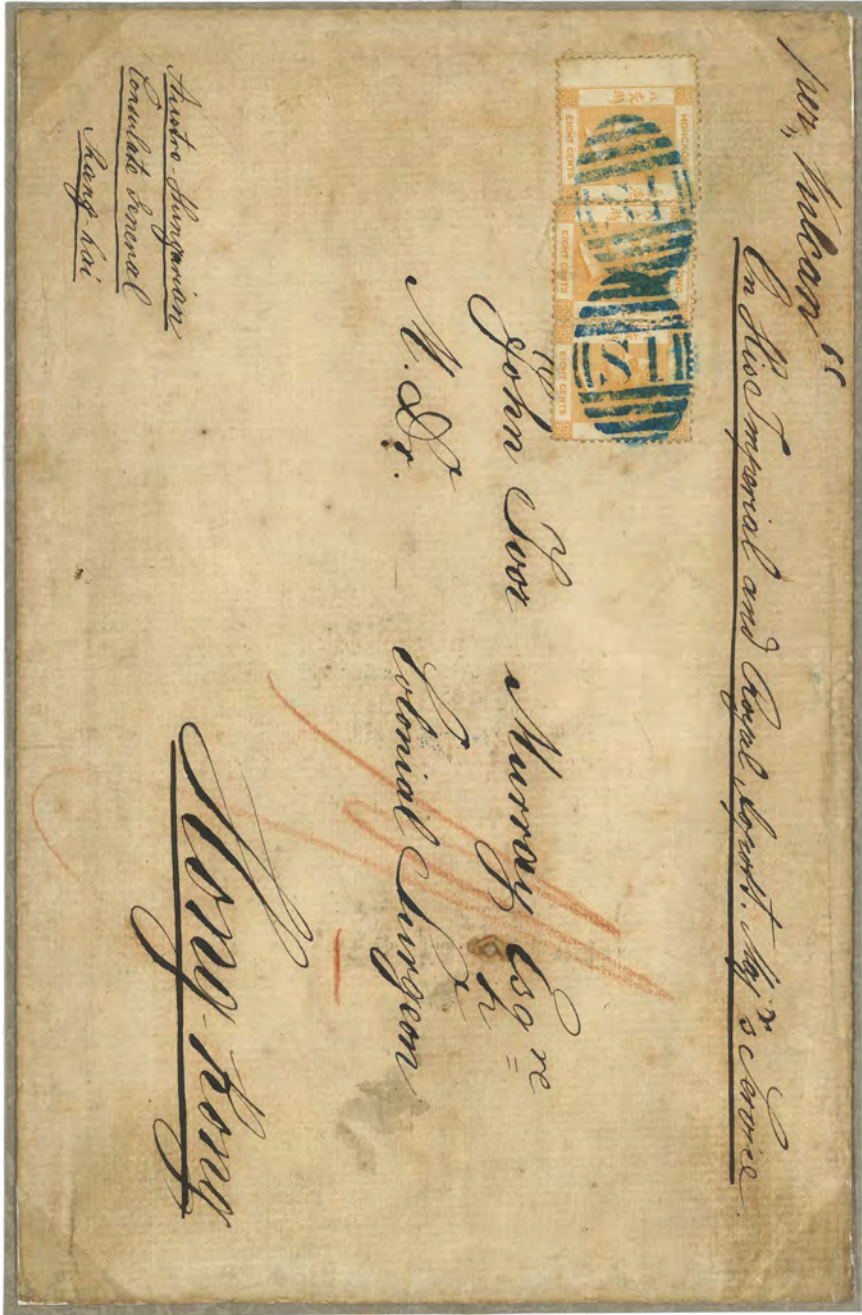 per „Vulcan“
On His Imperial and Royal Apost. Maj^ys Service
HONGKONG
EIGHT CENTS
EIGHT CENTS
EIGHT CENTS
S1
John Ivor Murray Esq^re
M. Dr.
Colonial Surgeon
Hong-Kong
Austro-Hungarian
Consulate General
Shang-hai